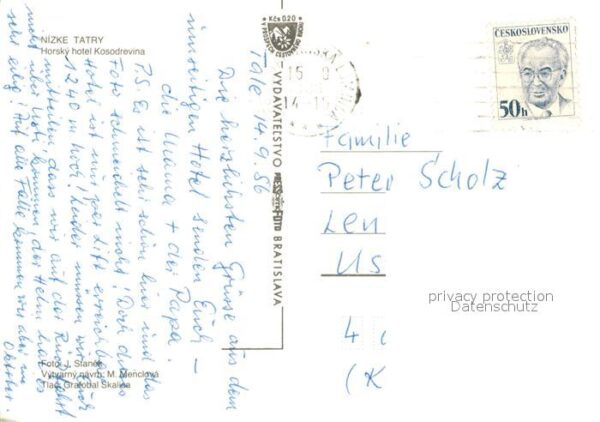 NÍZKE TATRY
Horský hotel Kosodrevina
Tále 14.9.86
Die herzlichsten Grüsse aus dem
Hotel senden Euch –
die Mama + der Papa.
P.S. Es ist sehr schön hier und das
Foto schmeichelt nicht! Doch das
Hotel ist nur per Lift erreichbar
1240 m hoch! Leider müssen wir Euch
mitteilen, dass wir auf der Rückfahrt
nicht über Usti kommen, der Helm hat es
sehr eilig! Auf alle Fälle kommen wir aber im
Oktober.
Foto: J. Staněk
Výtvarný návrh: M. Menclová
Tlač: Grafobal Skalica
Kčs 0,20
VYDAVATEĽSTVO PRESSFOTO BRATISLAVA
15. 9.
14-15
ČESKOSLOVENSKO
50h
Familie
Peter Scholz
Len
Us
4
(K
privacy protection
Datenschutz